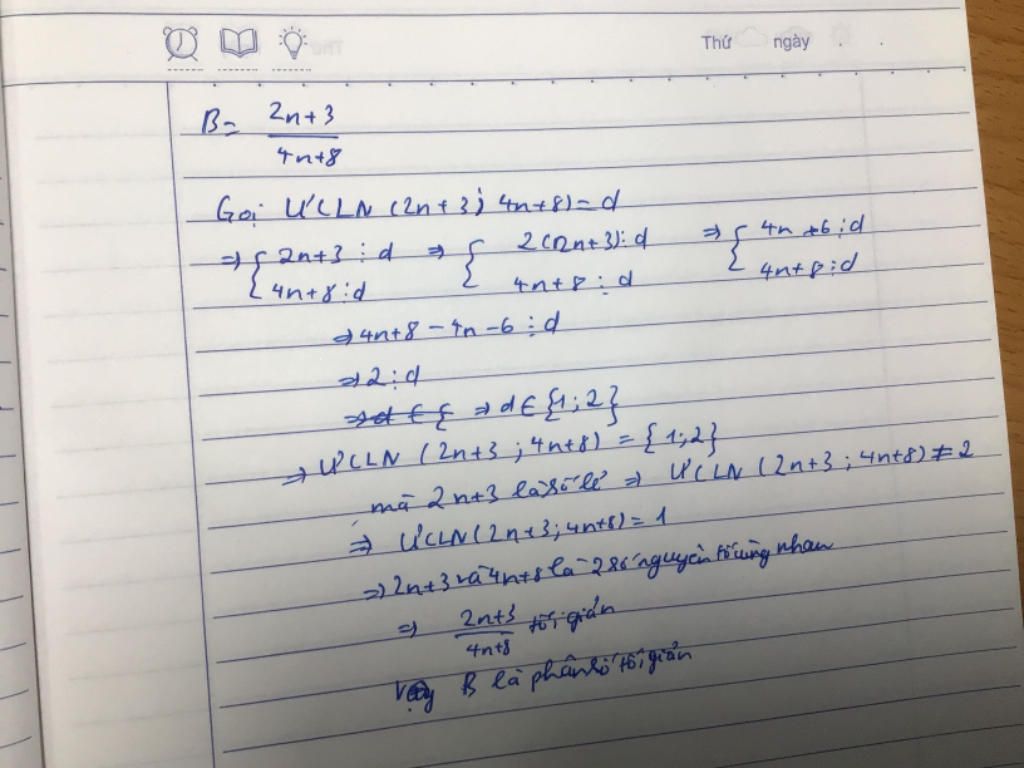 Thứ ngày
B = \frac{2n+3}{4n+8}
Gọi ƯCLN (2n+3; 4n+8) = d
⇒ { 2n+3 ⋮ d ; 4n+8 ⋮ d ⇒ { 2(2n+3) ⋮ d ; 4n+8 ⋮ d ⇒ { 4n+6 ⋮ d ; 4n+8 ⋮ d
⇒ 4n+8 - 4n - 6 ⋮ d
⇒ 2 ⋮ d
~~⇒ d ∈ {~~ ⇒ d ∈ {1; 2}
⇒ ƯCLN (2n+3; 4n+8) = {1; 2}
mà 2n+3 là số lẻ ⇒ ƯCLN (2n+3; 4n+8) ≠ 2
⇒ ƯCLN (2n+3; 4n+8) = 1
⇒ 2n+3 và 4n+8 là 2 số nguyên tố cùng nhau
⇒ \frac{2n+3}{4n+8} ~~tối giản~~
Vậy B là phân số tối giản